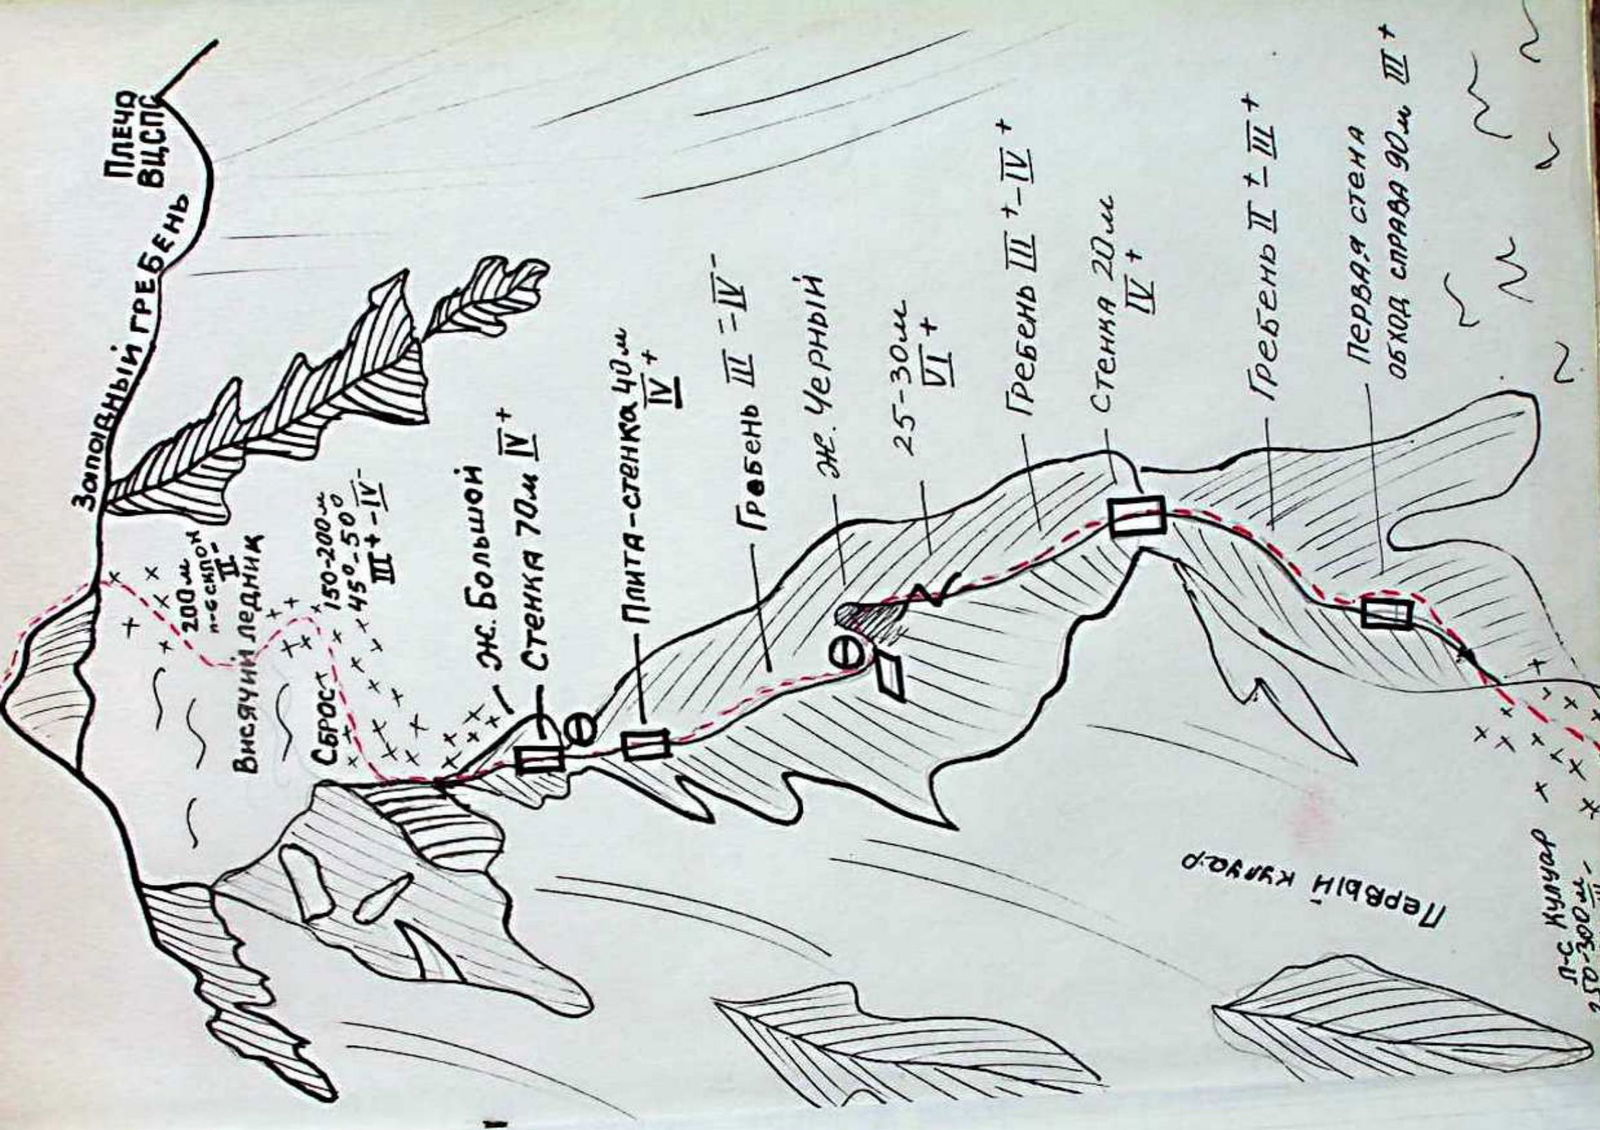 Плечо
ВЦСПС
Западный гребень
200м
л-б склон
II-
Висячий ледник
Сброс
150-200м
45°-50°
III+-IV-
Ж. Большой
Стенка 70м IV+
Плита-стенка 40м
IV+
Гребень III-IV-
Ж. Черный
25-30м
VI+
Гребень III+-IV+
Стенка 20м
IV+
Гребень II+-III+
Первая стена
обход справа 90м III+
Первый кулуар
Л-С кулуар
250-300м